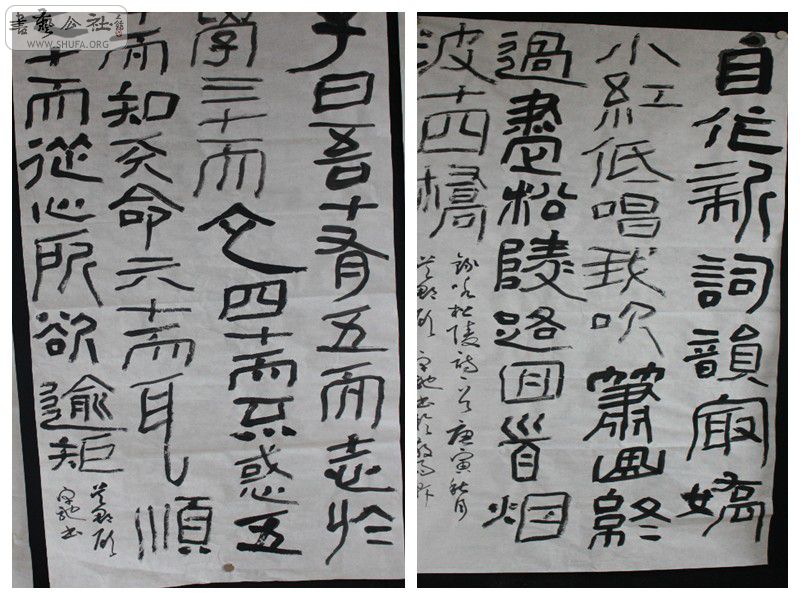 書藝公社
WWW.SHUFA.ORG
子曰吾十有五而志於
學三十而立四十而不惑五
十而知天命六十而耳順
十而從心所欲逾矩
自作新詞韻最嬌
小紅低唱我吹簫曲終
過盡松陵路回首烟
波十四橋
松陵詩一首庚寅秋月